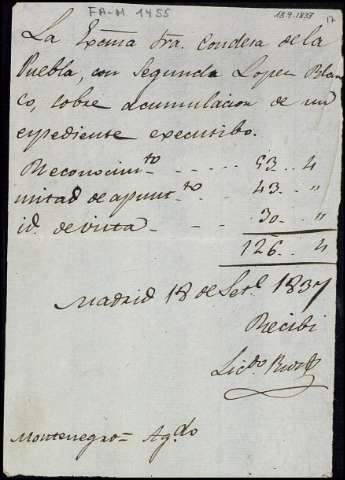 FA-M 1455
18.9.1837
17
La Exma Sra. Condesa de la
Puebla, con Segunda Lopez Blan
co, sobre acumulacion de un
expediente executibo.
Reconocimto - - - - 53.. 4
mitad de apuntto - - 43.. "
id. de vista - - - - 30.. "
126.. 4
Madrid 18 de Set.e 1837
Recibi
Licdo
Montenegro = Agdo